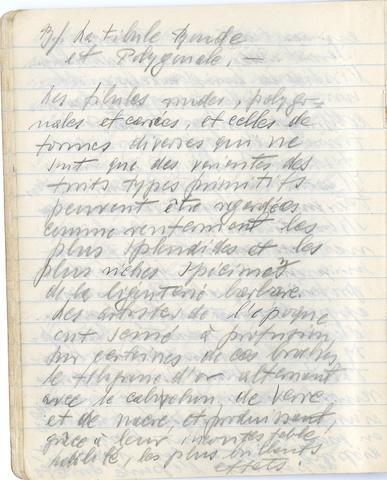 B). La Fibule Ronde
et Polygonale, —
Les fibules rondes, polygo-
nales et carrées, et celles de
formes diverses qui ne
sont que des variantes des
trois types primitifs
peuvent être regardées
comme renfermant les
plus splendides et les
plus riches spécimets
de la bijouterie barbare.
Les artistes de l'époque
ont semé à profusion
sur certaines de ces broches,
le filigrane d'or alternant
avec le cabochon, de verre
et de nacre, et produisant,
grâce à leur incontestable
habilité, les plus brillants
effets.